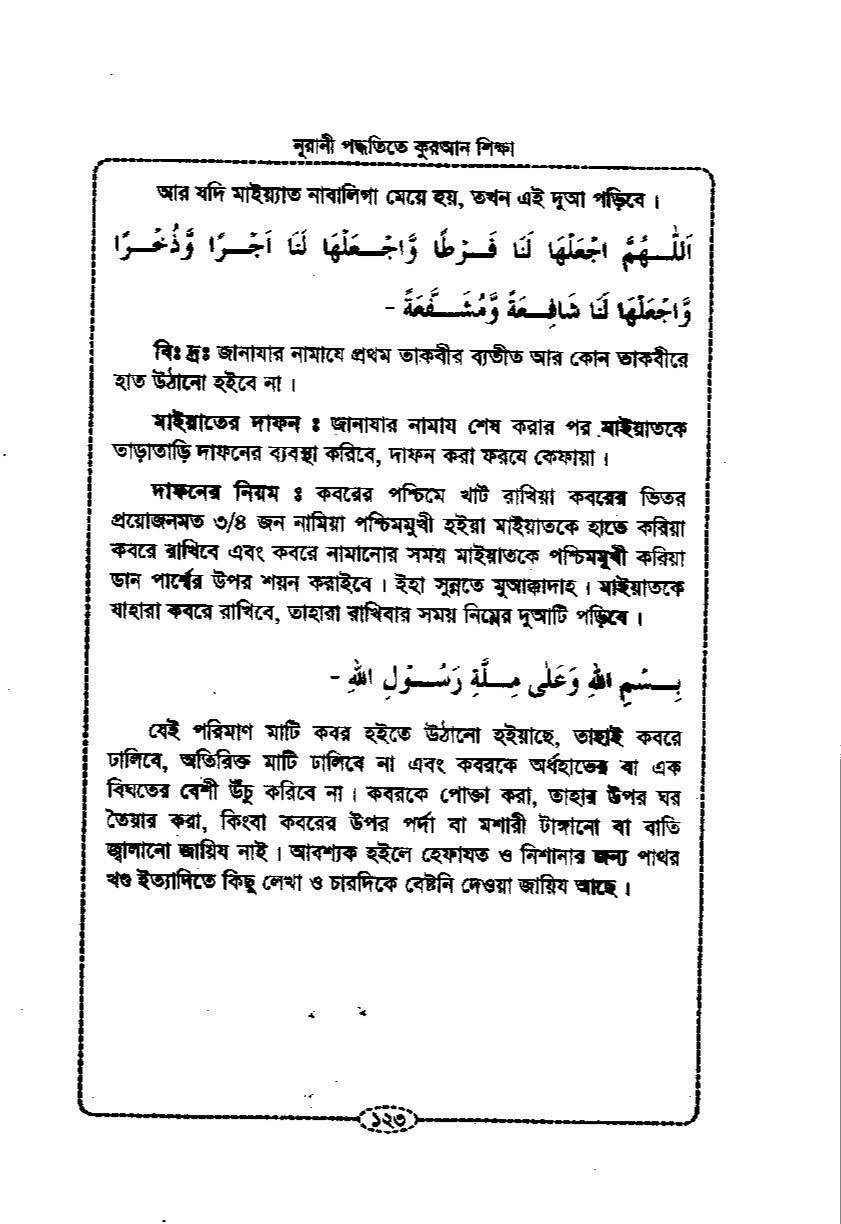 নূরানী পদ্ধতিতে কুরআন শিক্ষা
আর যদি মাইয়্যাত নাবালিগা মেয়ে হয়, তখন এই দুআ পড়িবে।
اَللّٰهُمَّ اجْعَلْهَا لَنَا فَرْطًا وَّاجْعَلْهَا لَنَا اَجْرًا وَّذُخْرًا
وَّاجْعَلْهَا لَنَا شَافِعَةً وَّمُشَفَّعَةً -
বিঃ দ্রঃ জানাযার নামাযে প্রথম তাকবীর ব্যতীত আর কোন তাকবীরে
হাত উঠানো হইবে না।
মাইয়াতের দাফন : জানাযার নামায শেষ করার পর মাইয়াতকে
তাড়াতাড়ি দাফনের ব্যবস্থা করিবে, দাফন করা ফরযে কেফায়া।
দাফনের নিয়ম : কবরের পশ্চিমে খাট রাখিয়া কবরের ভিতর
প্রয়োজনমত ৩/৪ জন নামিয়া পশ্চিমমুখী হইয়া মাইয়াতকে হাতে করিয়া
কবরে রাখিবে এবং কবরে নামানোর সময় মাইয়াতকে পশ্চিমমুখী করিয়া
ডান পার্শ্বের উপর শয়ন করাইবে। ইহা সুন্নতে মুআক্কাদাহ। মাইয়াতকে
যাহারা কবরে রাখিবে, তাহারা রাখিবার সময় নিম্নের দুআটি পড়িবে।
بِسْمِ اللهِ وَعَلٰى مِلَّةِ رَسُوْلِ اللهِ -
যেই পরিমাণ মাটি কবর হইতে উঠানো হইয়াছে, তাহাই কবরে
ঢালিবে, অতিরিক্ত মাটি ঢালিবে না এবং কবরকে অর্ধহাতের বা এক
বিঘতের বেশী উঁচু করিবে না। কবরকে পোক্তা করা, তাহার উপর ঘর
তৈয়ার করা, কিংবা কবরের উপর পর্দা বা মশারী টাঙ্গানো বা বাতি
জ্বালানো জায়িয নাই। আবশ্যক হইলে হেফাযত ও নিশানার জন্য পাথর
খণ্ড ইত্যাদিতে কিছু লেখা ও চারদিকে বেষ্টনি দেওয়া জায়িয আছে।
১২৩